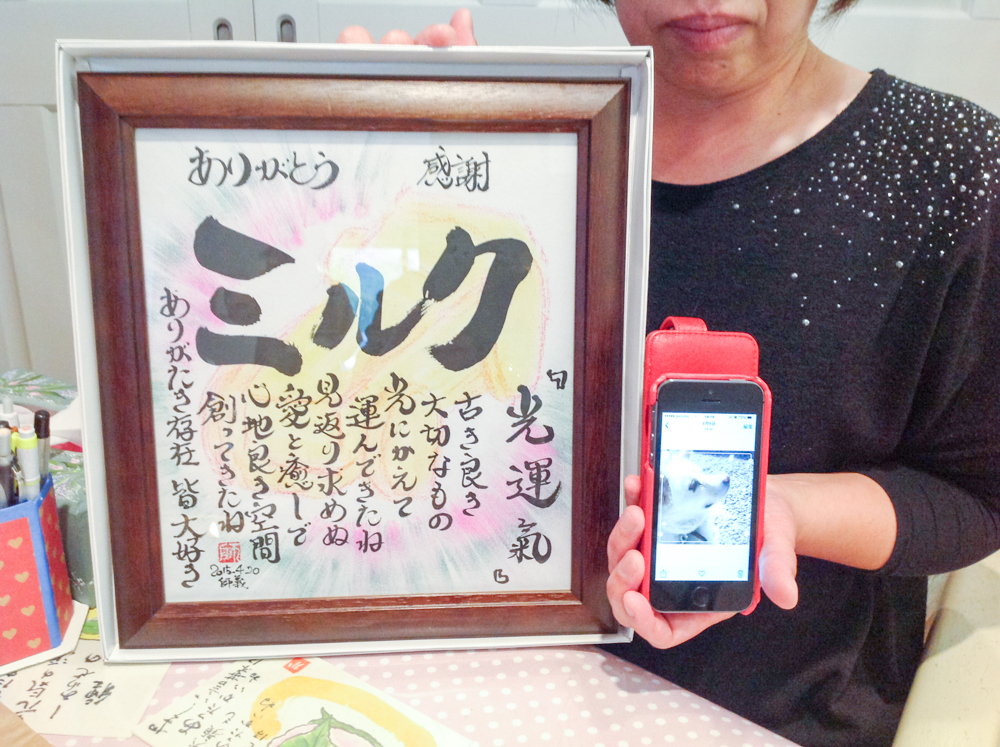 ありがとう 感謝
ミルク
『光運氣』
古き良き
大切なもの
光にかえて
運んできたね
見返り求めぬ
愛と癒しで
心地良き空間
創ってきたね
ありがたき存在 皆大好き
2015.4.20